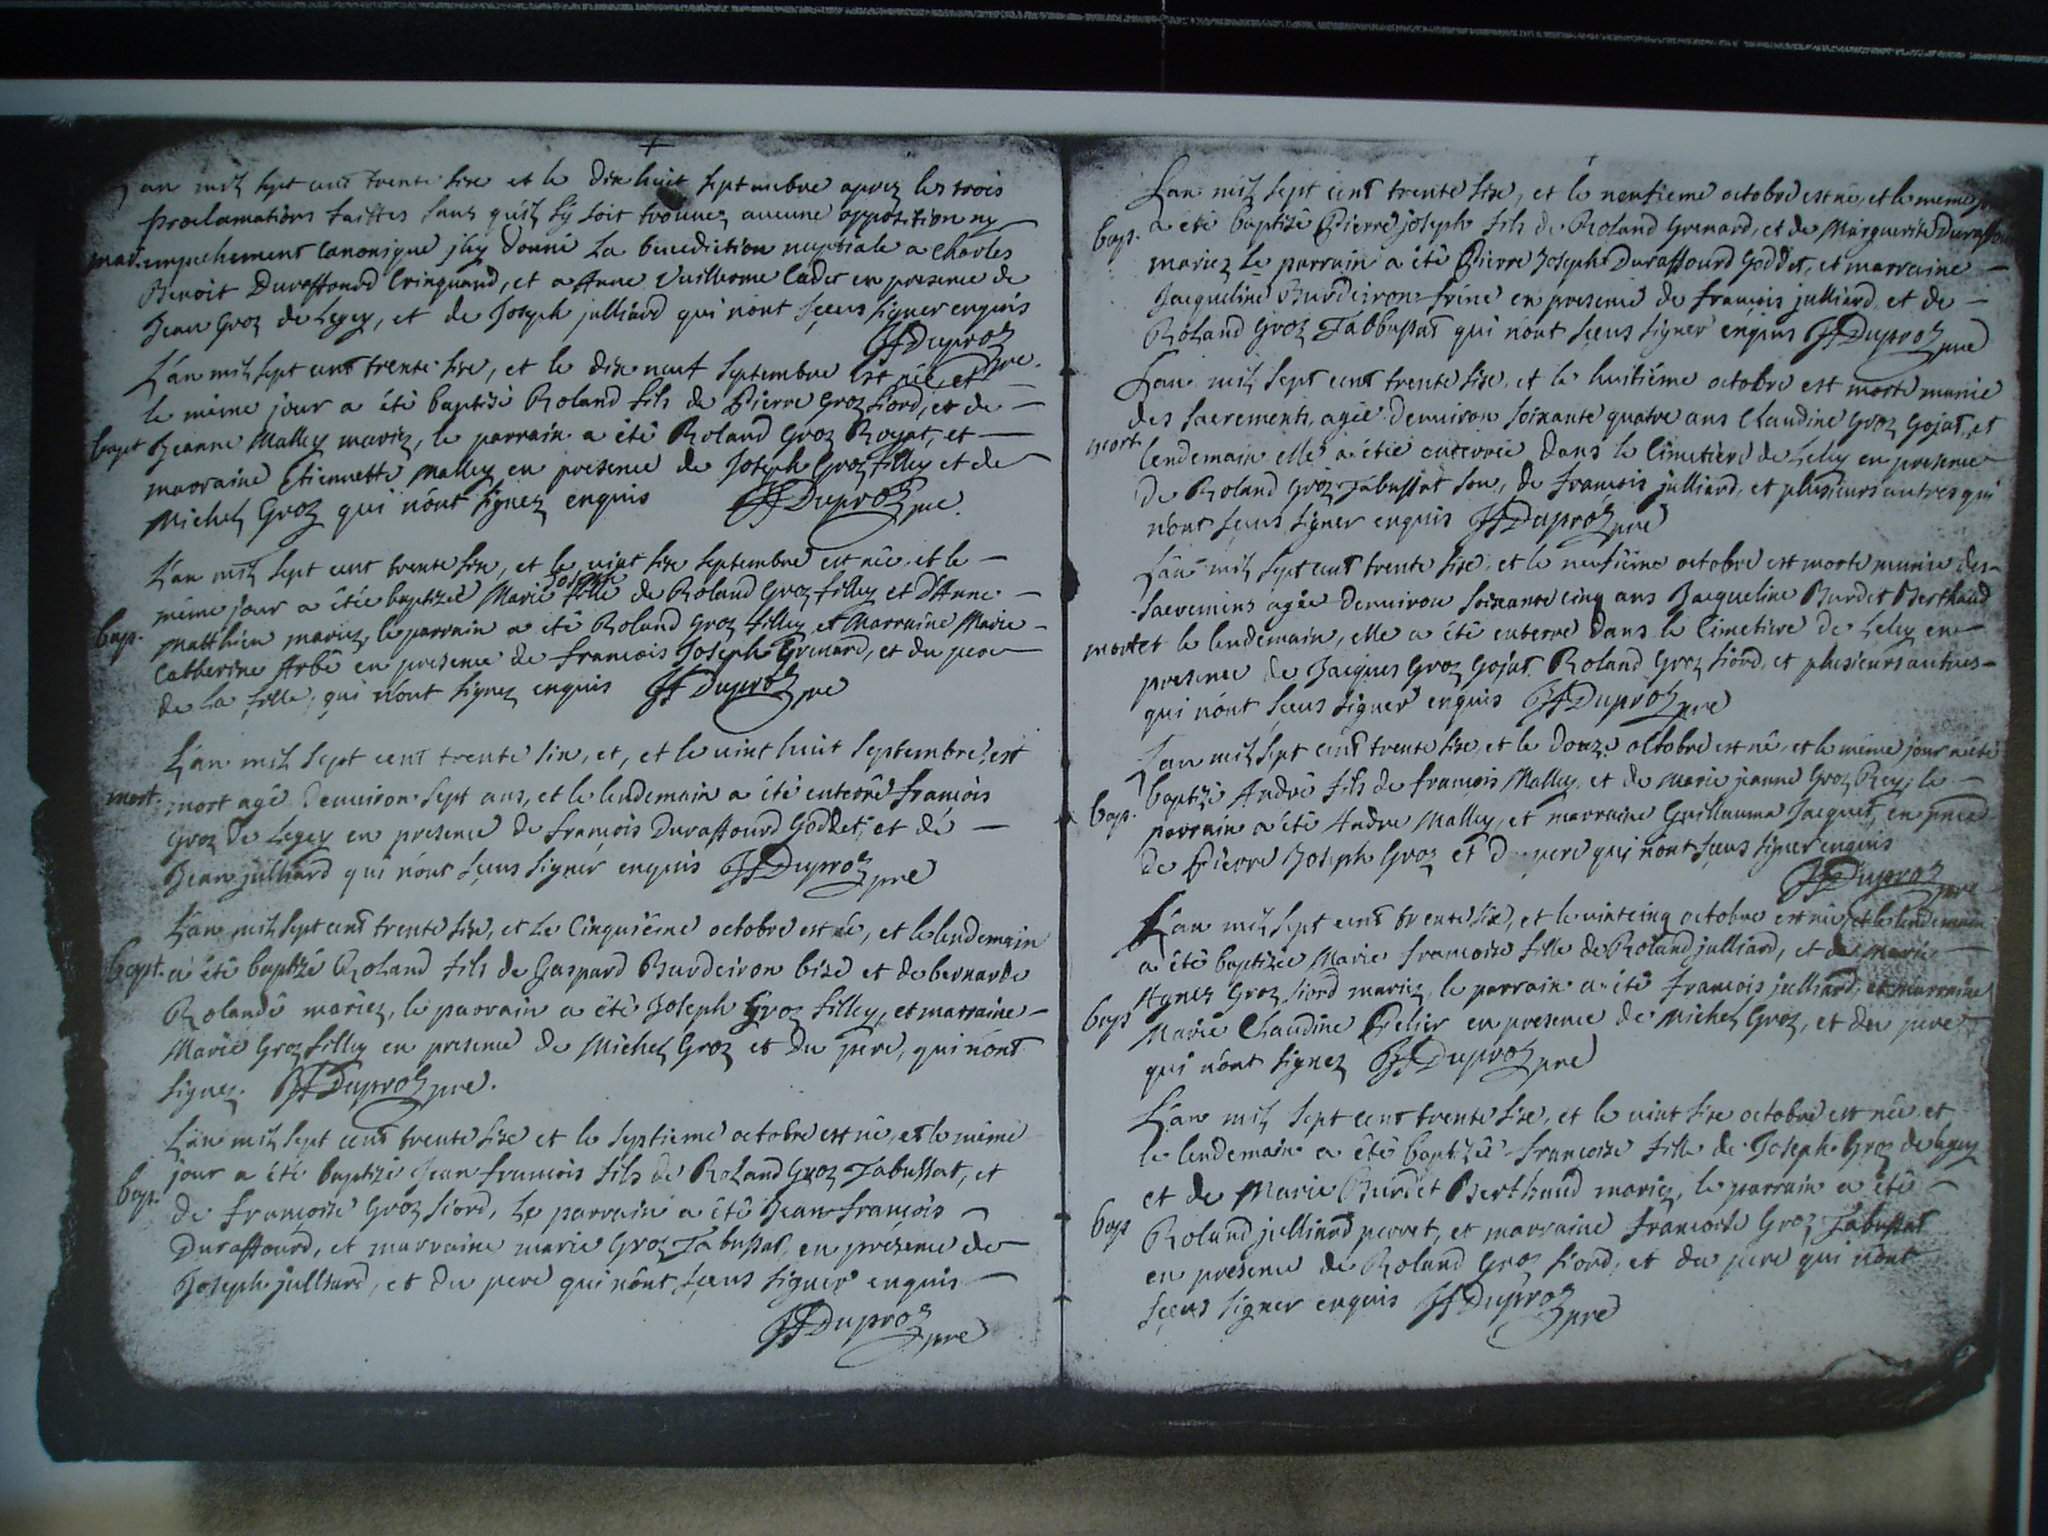 L'an mil sept cent trente sixe et le dix huit septembre apres les trois
proclamations faittes sans qu'il sÿ soit trouvez aucune opposition ny
mar. empechement canonique j'ay donné la benediction nuptiale a Charles
Benoit Duraffourd Cringuand, et a Anne Vuilherme Cadet en presence de
Jean Groz de Legey, et de Joseph julliard qui nont sçeus signer enquis
JF Duproz pre.
L'an mil sept cent trente sixe, et le dixe neuf septembre est née, et
le même jour a été baptizé Roland fils de Pierre Groz fiord, et de
bapt Jeanne Malley mariez, le parrain a été Roland Groz Royat, et
marraine Etiennette Malley en presence de Joseph Groz filley et de
Michel Groz qui n'ont signez enquis JF Duproz pre.
L'an mil sept cent trente sixe, et le vint sixe septembre est née, et le
même jour a étée baptizée Marie fille de Roland Groz filley et d'Anne
bap. Matthieu mariez, le parrain a été Roland Groz filley et Marraine Marie
Catherine Arbé en presence de francois Joseph Grenard, et du pere
de la fille, qui n'ont signez enquis JF Duproz pre
L'an mil sept cent trente sixe, et, et le vint huit septembre est
mort. mort agé denviron sept ans, et le lendemain a été enterré francois
Groz de Legey en presence de francois Duraffourd Goddet, et de
Jean julliard qui n'ont sçeus signer enquis JF Duproz pre
L'an mil sept cent trente sixe, et le Cinquiême octobre est né, et le lendemain
bapt. a été baptizé Roland fils de Gaspard Burdeiron bize et de bernarde
Rolande mariez, le parrain a été Joseph Groz filley, et marraine
Marie Groz filley en presence de Michel Groz et du pere, qui n'ont
signez. JF Duproz pre.
L'an mil sept cent trente sixe et le septieme octobre est né, et le même
jour a été baptizé Jean francois fils de Roland Groz Tabussat, et
bap. de françoise Groz fiord, Le parrain a été Jean françois
Duraffourd, et marraine marie Groz Tabussat, en présence de
Joseph julliard, et du pere qui n'ont sçeus signer enquis
JF Duproz pre
L'an mil sept cent trente sixe, et le neufieme octobre est né, et le meme jour
bap. a été baptizé Pierre joseph fils de Roland Grenard, et de Marguerite Duraffourd
mariez Le parrain a été Pierre Joseph Duraffourd Goddet, et marraine
Jacqueline Burdeiron frine en presence de francois julliard et de
Roland Groz Tabbussat qui n'ont sçeus signer enquis JF Duproz pre
L'an mil sept cent trente sixe, et le huitiéme octobre est morte munie
des sacrements, agée denviron soixante quatre ans Claudine Groz Gojat, et
mort lendemain elle a étée enterrée dans le Cimetiere de Leley en presence
de Roland Groz Tabussat son, de francois julliard, et plusieurs autres qui
n'ont sçeus signer enquis JF Duproz pre
L'an mil sept cent trente sixe, et le neufiéme octobre est morte munie des
sacremens agée denviron soixante cinq ans Jacqueline Burdet Berthaud
mort et le lendemain, elle a été enterré dans le Cimetiere de Leley en
presence de Jacques Groz Gojat Roland Groz fiord, et plusieurs autres
qui n'ont sçeus signer enquis JF Duproz pre
L'an mil sept cent trente sixe, et le douze octobre est né, et le même jour a été
baptizé André fils de francois Malley, et de Marie jeanne Groz Rey, le
bap. parrain a été Andre Malley, et marraine Guillauma Jacquet, en presence
de Pierre Joseph Groz et d pere qui nont sçeus signer enquis
JF Duproz pre
L'an mil sept cent trente sixe, et le vint cinq octobre est née, et le lendemain
a été baptizée Marie francoise fille de Roland julliard, et de Marie
Agnes Groz fiord mariez, le parrain a été francois julliard, et marraine
bap Marie Claudine Pelier en presence de Michel Groz, et du pere
qui n'ont signez JF Duproz pre
L'an mil sept cent trente sixe, et le vint sixe octobre est née et
le lendemain a été baptizée francoise fille de Joseph Groz de legey
et de Marie Burdet Berthaud mariez, le parrain a été
bap Roland julliard perret, et marraine francoise Groz Tabussat
en presence de Roland Groz fiord, et du pere qui n'ont
sçeus signer enquis JF Duproz pre